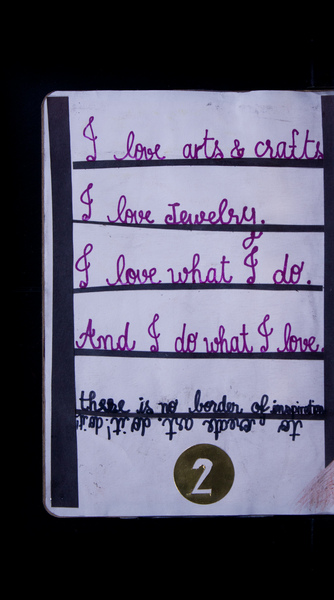 I love arts & crafts
I love Jewelry.
I love what I do.
And I do what I love.
there is no border of inspiration
to create art do it! do it!
2